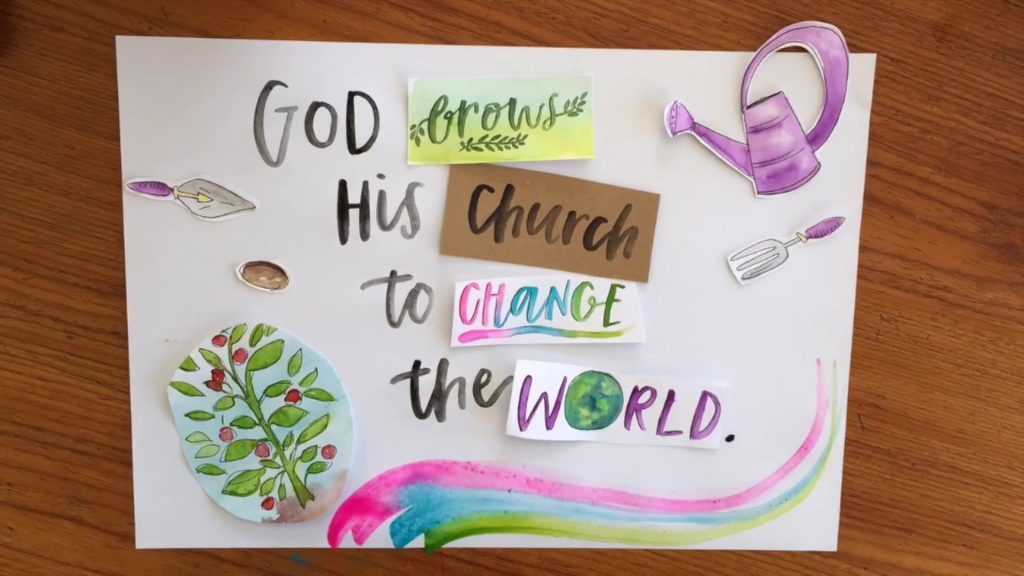 GOD grows
His Church
to CHANGE
the WORLD.